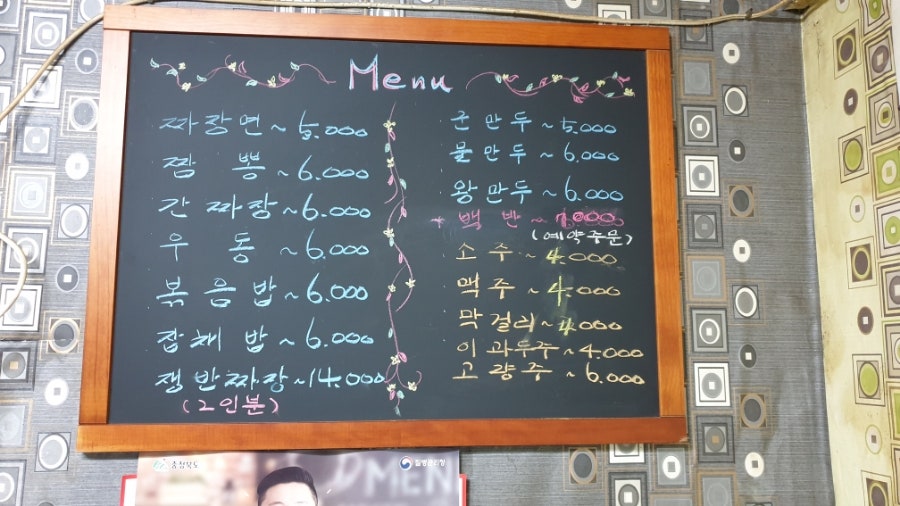 Menu
짜장면 ~ 5.000
짬뽕 ~ 6.000
간짜장 ~ 6.000
우동 ~ 6.000
볶음밥 ~ 6.000
잡채밥 ~ 6.000
쟁반짜장 ~ 14.000
(2인분)
군만두 ~ 5.000
물만두 ~ 6.000
왕만두 ~ 6.000
백반 ~
(예약주문)
소주 ~ 4.000
맥주 ~ 4.000
막걸리 ~ 4.000
이과두주 ~ 4.000
고량주 ~ 6.000
충청북도
질병관리청
MEN